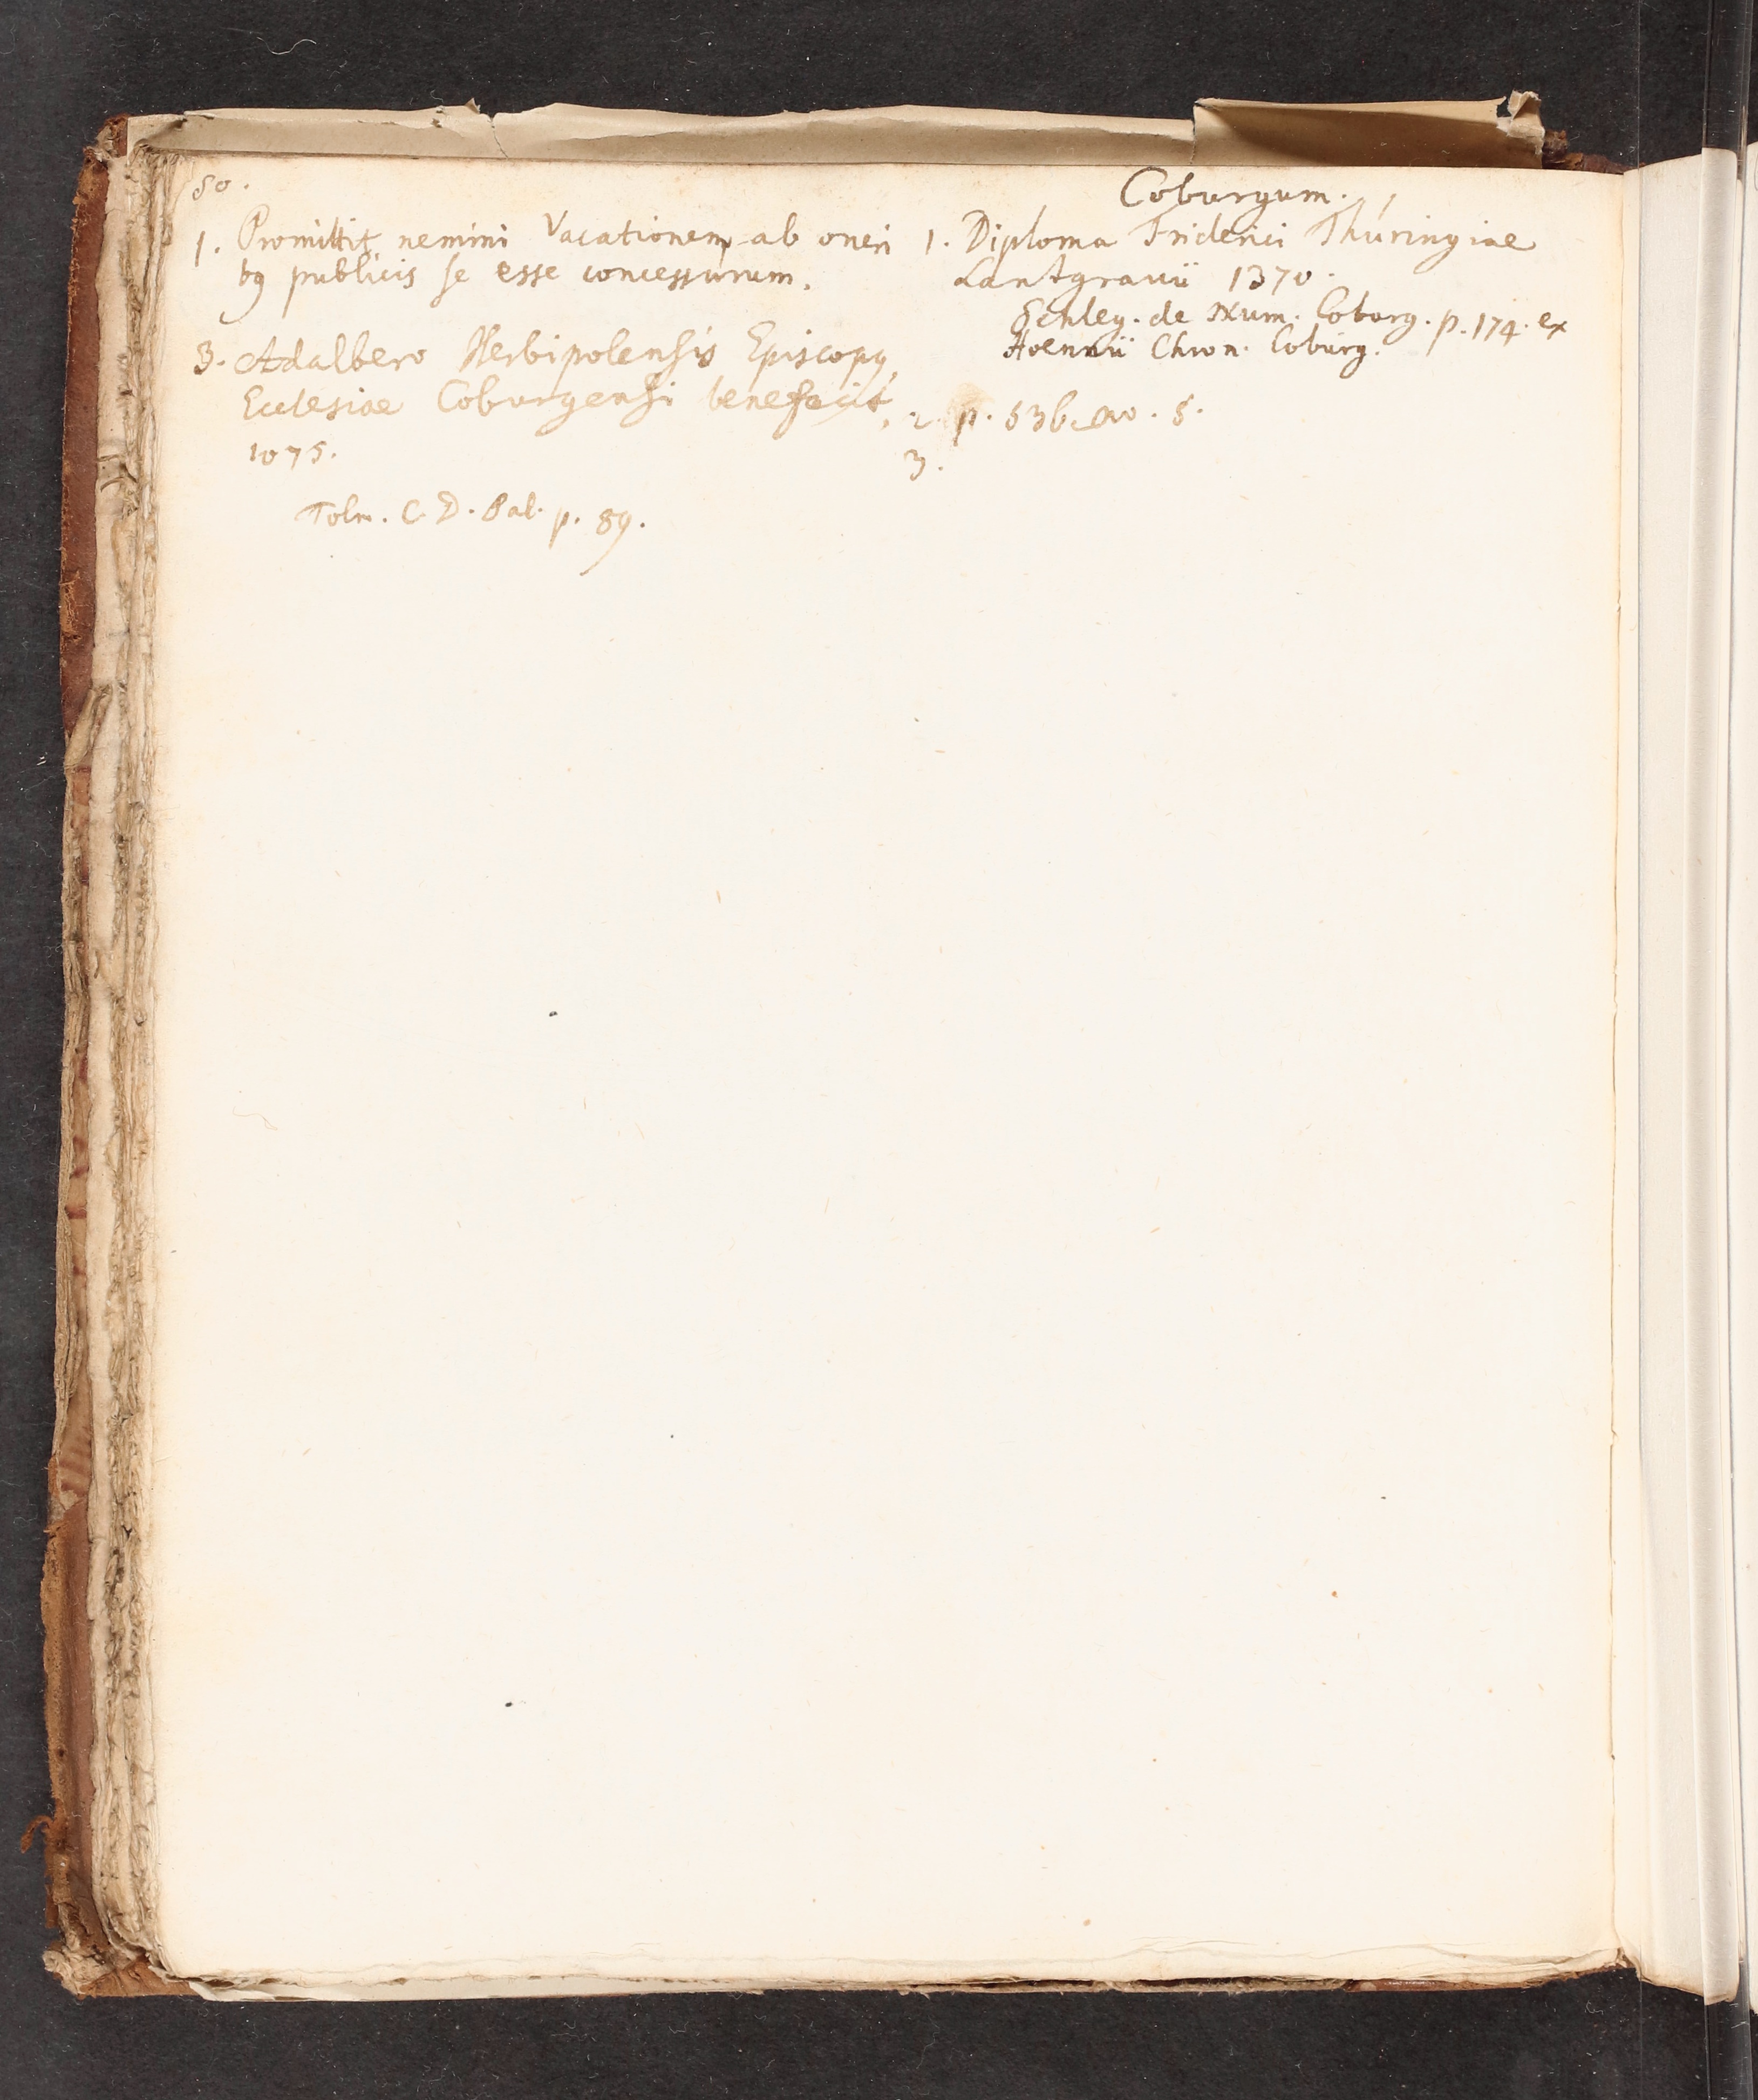 80.
Coburgum.
1. Promittit nemini Vacationem ab oneri
bꝯ publicis se esse concessurum.
3. Adalbero Herbipolensis Episcopꝯ
Ecclesiae Coburgensi benefacit,
1075.
Toln. C. D. Pal. p. 89.
1. Diploma Friderici Thuringiae
Lantgravii 1370.
Schleg. de Num. Coburg. p. 174. ex
Hoennii Chron. Coburg.
2. p. 536. no. 5.
3.